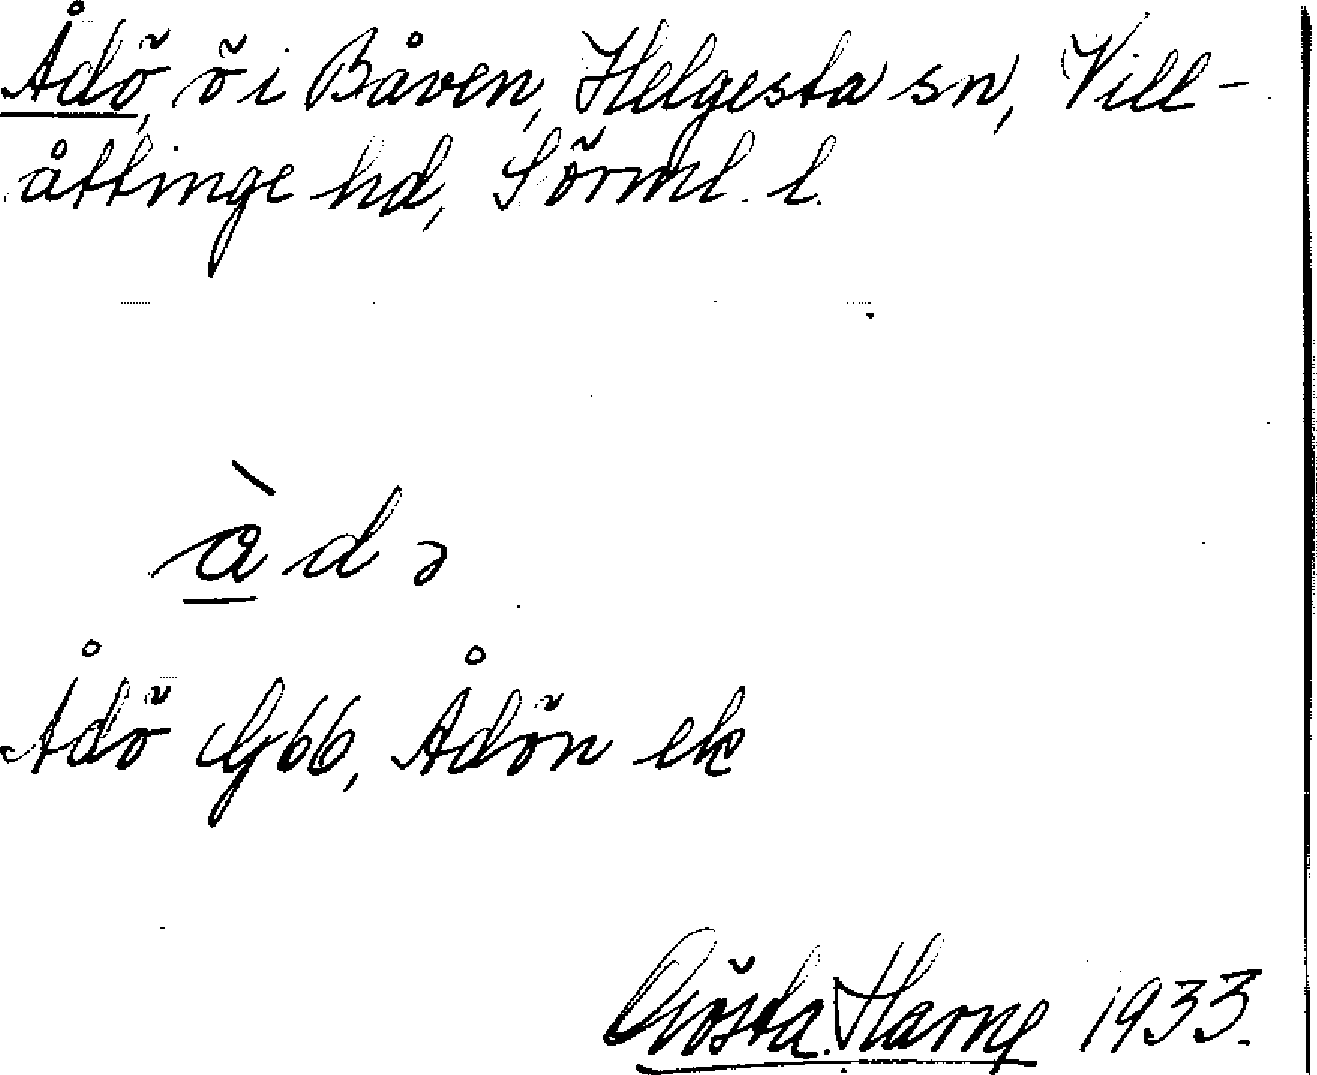 Ådö, ö i Båven, Helgesta sn, Vill-
åttinge hd, Sörml. l.
àdə
Ådö G66, Ådön ek
Gösta Harne 1933.